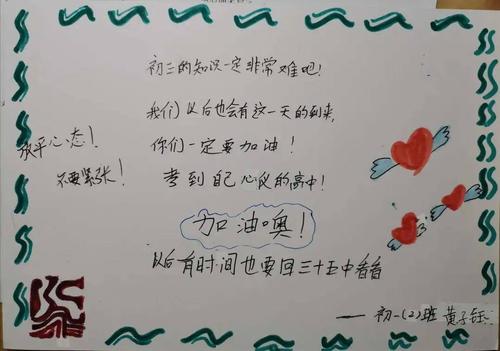 初三的知识一定非常难吧!
我们以后也会有这一天的到来,
你们一定要加油!
考到自己心仪的高中!
放平心态!
不要紧张!
加油噢!
以后有时间也要回三十五中看看
——初一(2)班 黄子钰